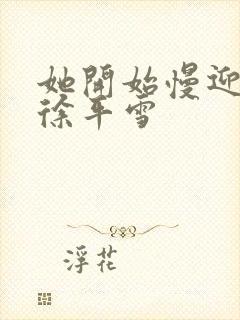 她開始慢迎
徐平雪
浮花